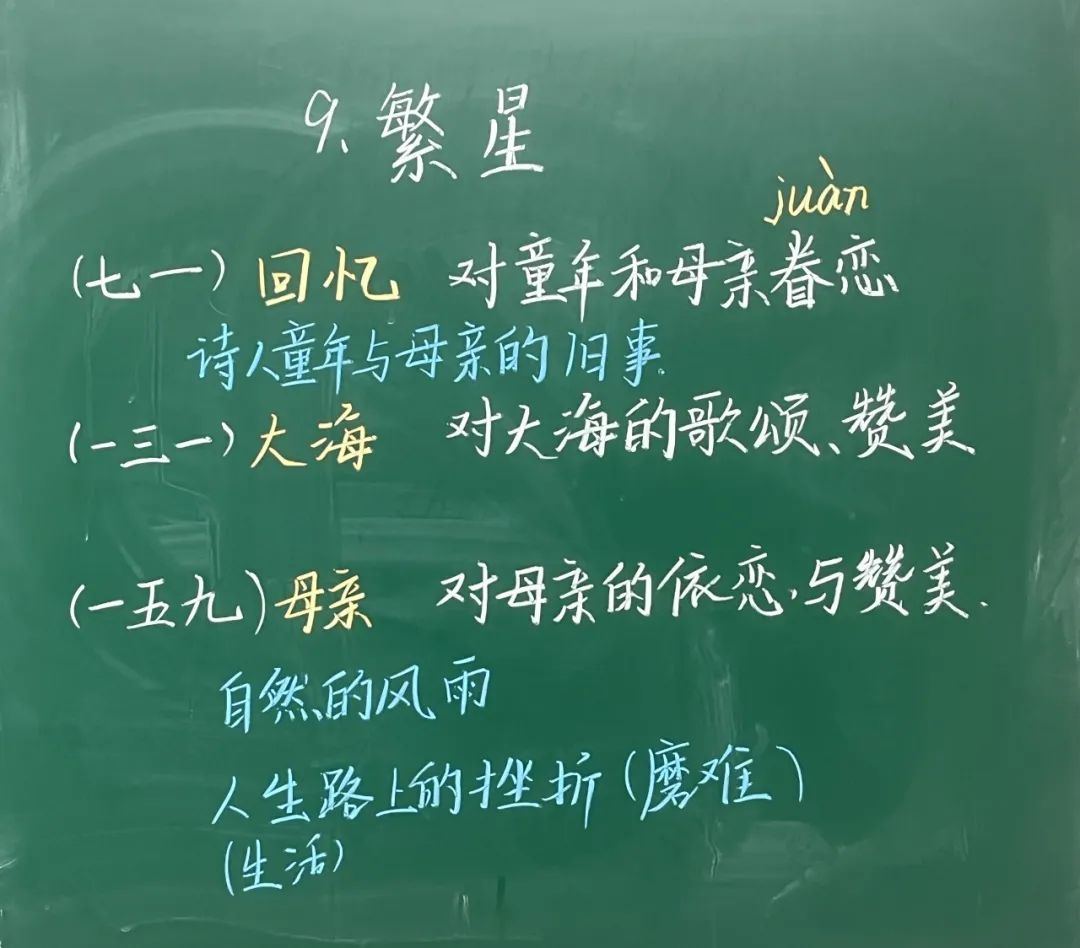 9、繁星
juàn
(七一)回忆 对童年和母亲眷恋
诗人童年与母亲的旧事.
(一三一)大海 对大海的歌颂、赞美
(一五九)母亲 对母亲的依恋,与赞美.
自然的风雨
人生路上的挫折(磨难)
(生活)